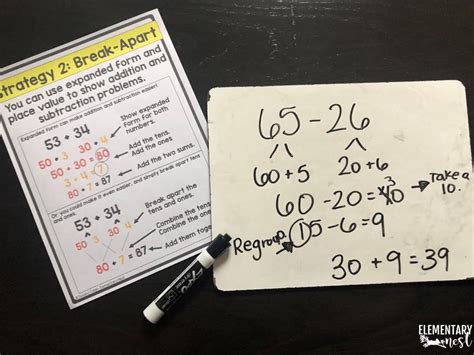 Strategy 2: Break-Apart
You can use expanded form and
place value to show addition and
subtraction problems.
Expanded form can make addition and subtraction easier!
53 + 34
50 + 3 30 + 4
50 + 30 = 80
3 + 4 = 7
80 + 7 = 87
Show expanded
form for both
numbers.
Add the tens.
Add the ones.
Add the two sums.
Or you could make it even easier, and simply break apart tens
and ones.
53 + 34
80 + 7 = 87
Break apart the
tens and ones.
Combine the tens.
Combine the ones.
Add them together.
65 - 26
60 + 5 20 + 6
3
60 - 20 = 40 → Take a
10.
Regroup. → 15 - 6 = 9
30 + 9 = 39
ELEMENTARY
nest